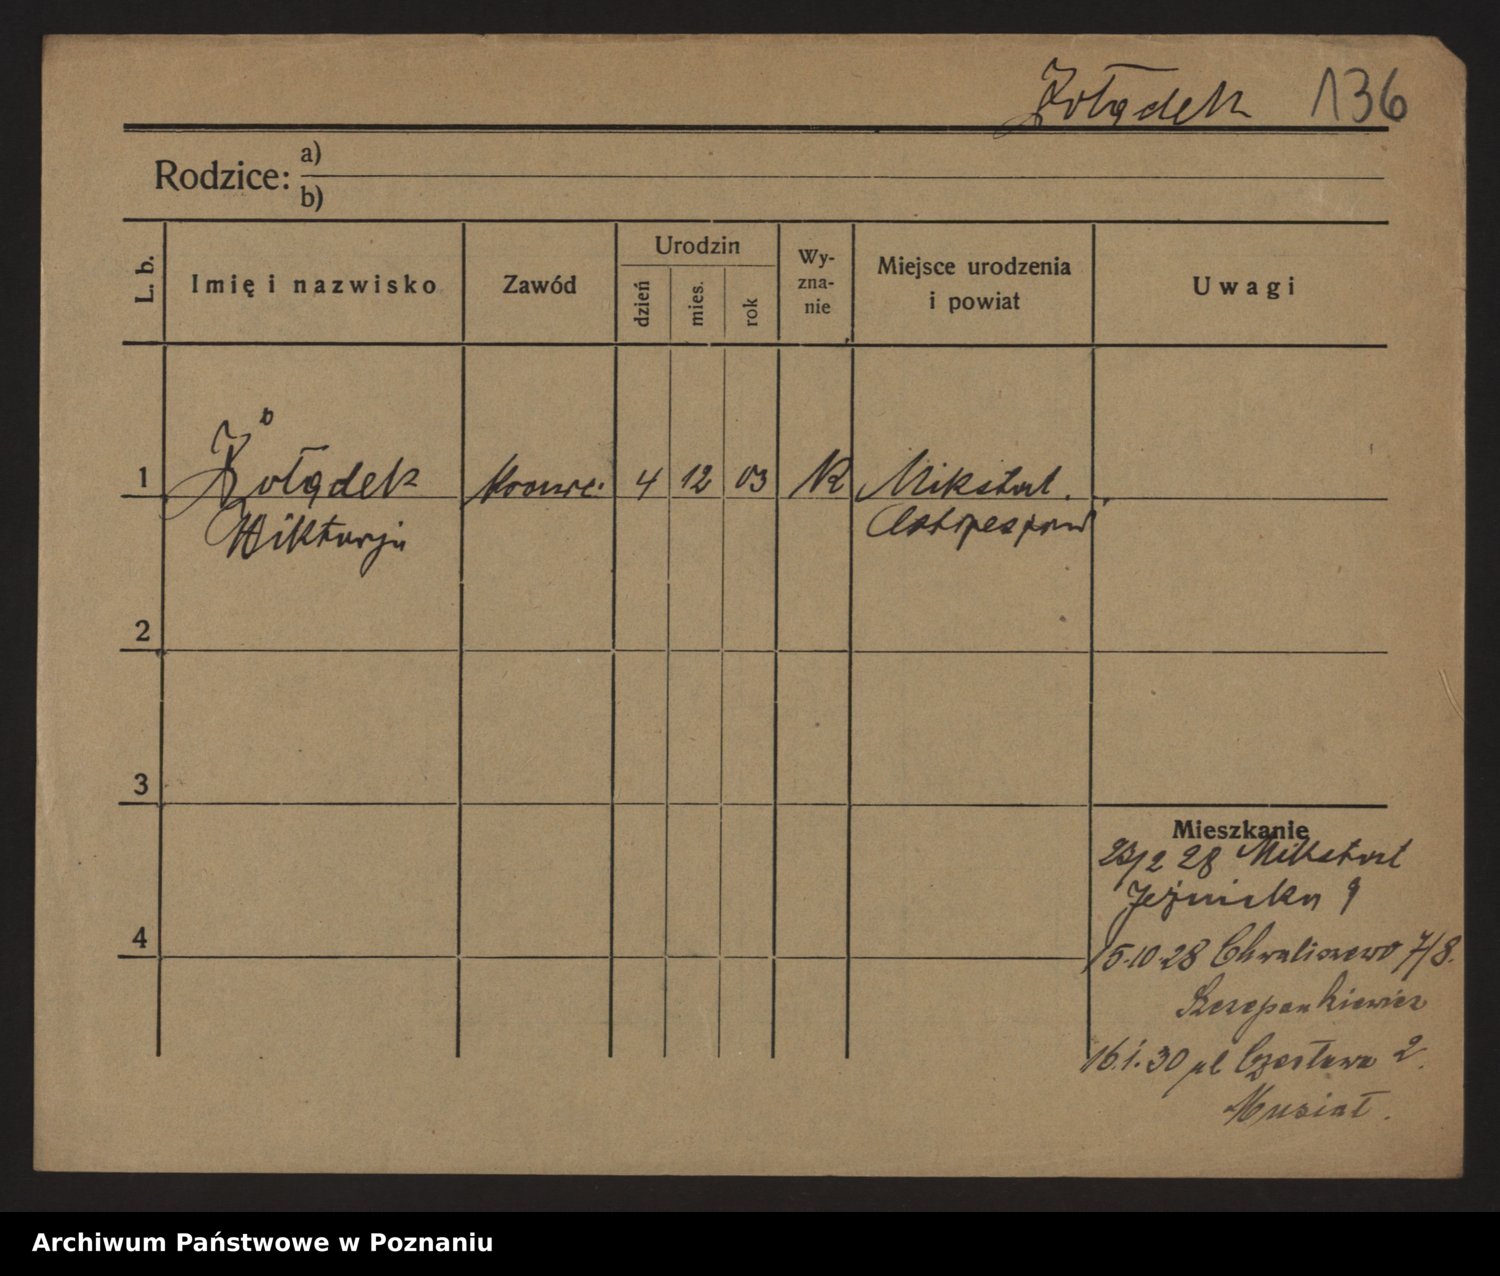 Żołądek 136
Rodzice: a)
b)
L. b. Imię i nazwisko Zawód Urodzin dzień mies. rok Wy-zna-nie Miejsce urodzenia i powiat Uwagi
1 Żołądek 4 12 03 Mikstat
Wiktorja
2
3
4
Mieszkanie
28 Mikstat
9
15.10.28 Chwaliszewo 7/8.
Szczepankiewicz
16.1.30 pl Czesława 2.
Musiał.
Archiwum Państwowe w Poznaniu